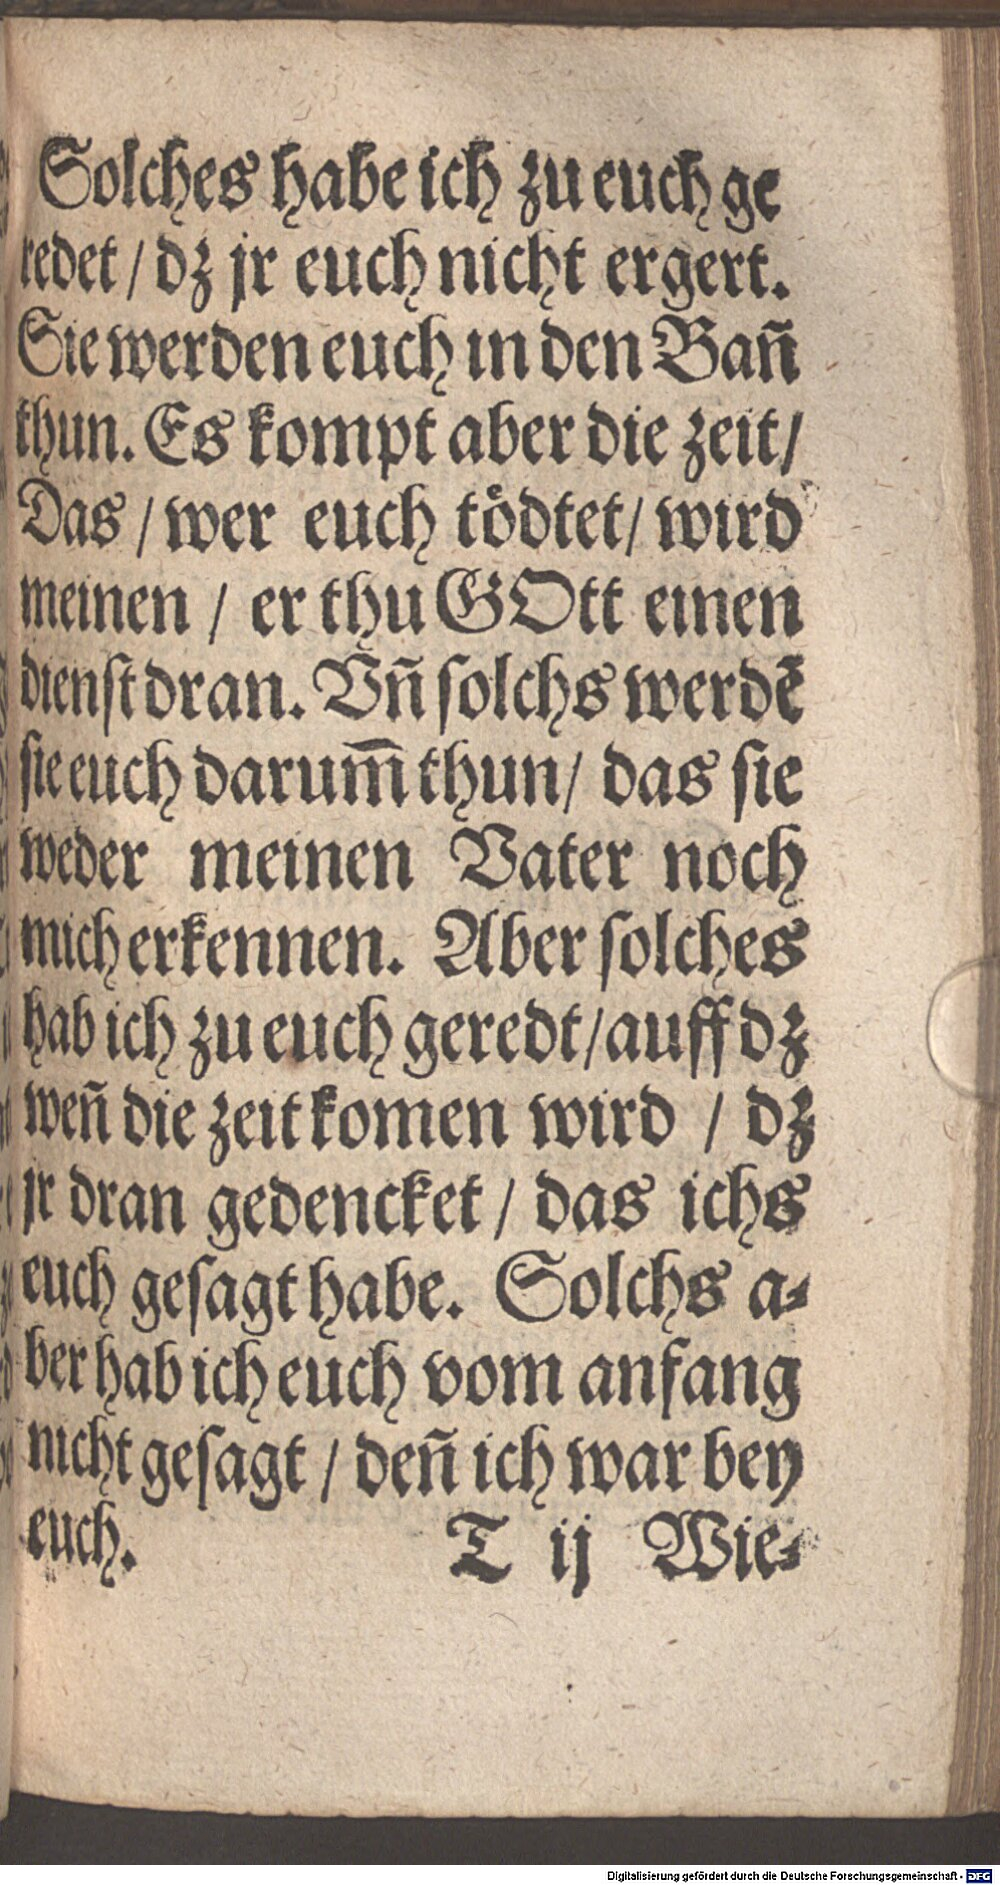 Solches habe ich zu euch ge
redet / dz jr euch nicht ergert.
Sie werden euch in den Bañ
thun. Es kompt aber die zeit /
Das / wer euch toͤdtet / wird
meinen / er thu GOtt einen
dienſt dran. Vñ ſolchs werdē
ſie euch darum̄ thun / das ſie
weder meinen Vater noch
mich erkennen. Aber ſolches
hab ich zu euch geredt / auff dz
weñ die zeit komen wird / dz
jr dran gedencket / das ichs
euch geſagt habe. Solchs a-
ber hab ich euch vom anfang
nicht geſagt / deñ ich war bey
euch. T ij Wie-
Digitalisierung gefördert durch die Deutsche Forschungsgemeinschaft - DFG